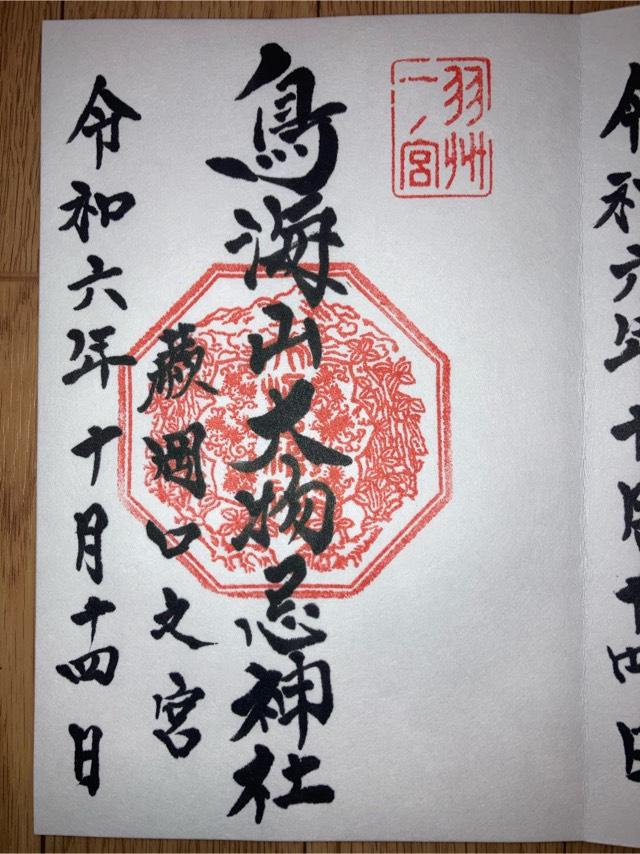 令和六年十月十四日
羽州
一ノ宮
鳥海山大物忌神社
蕨岡口之宮
令和六年十月十四日